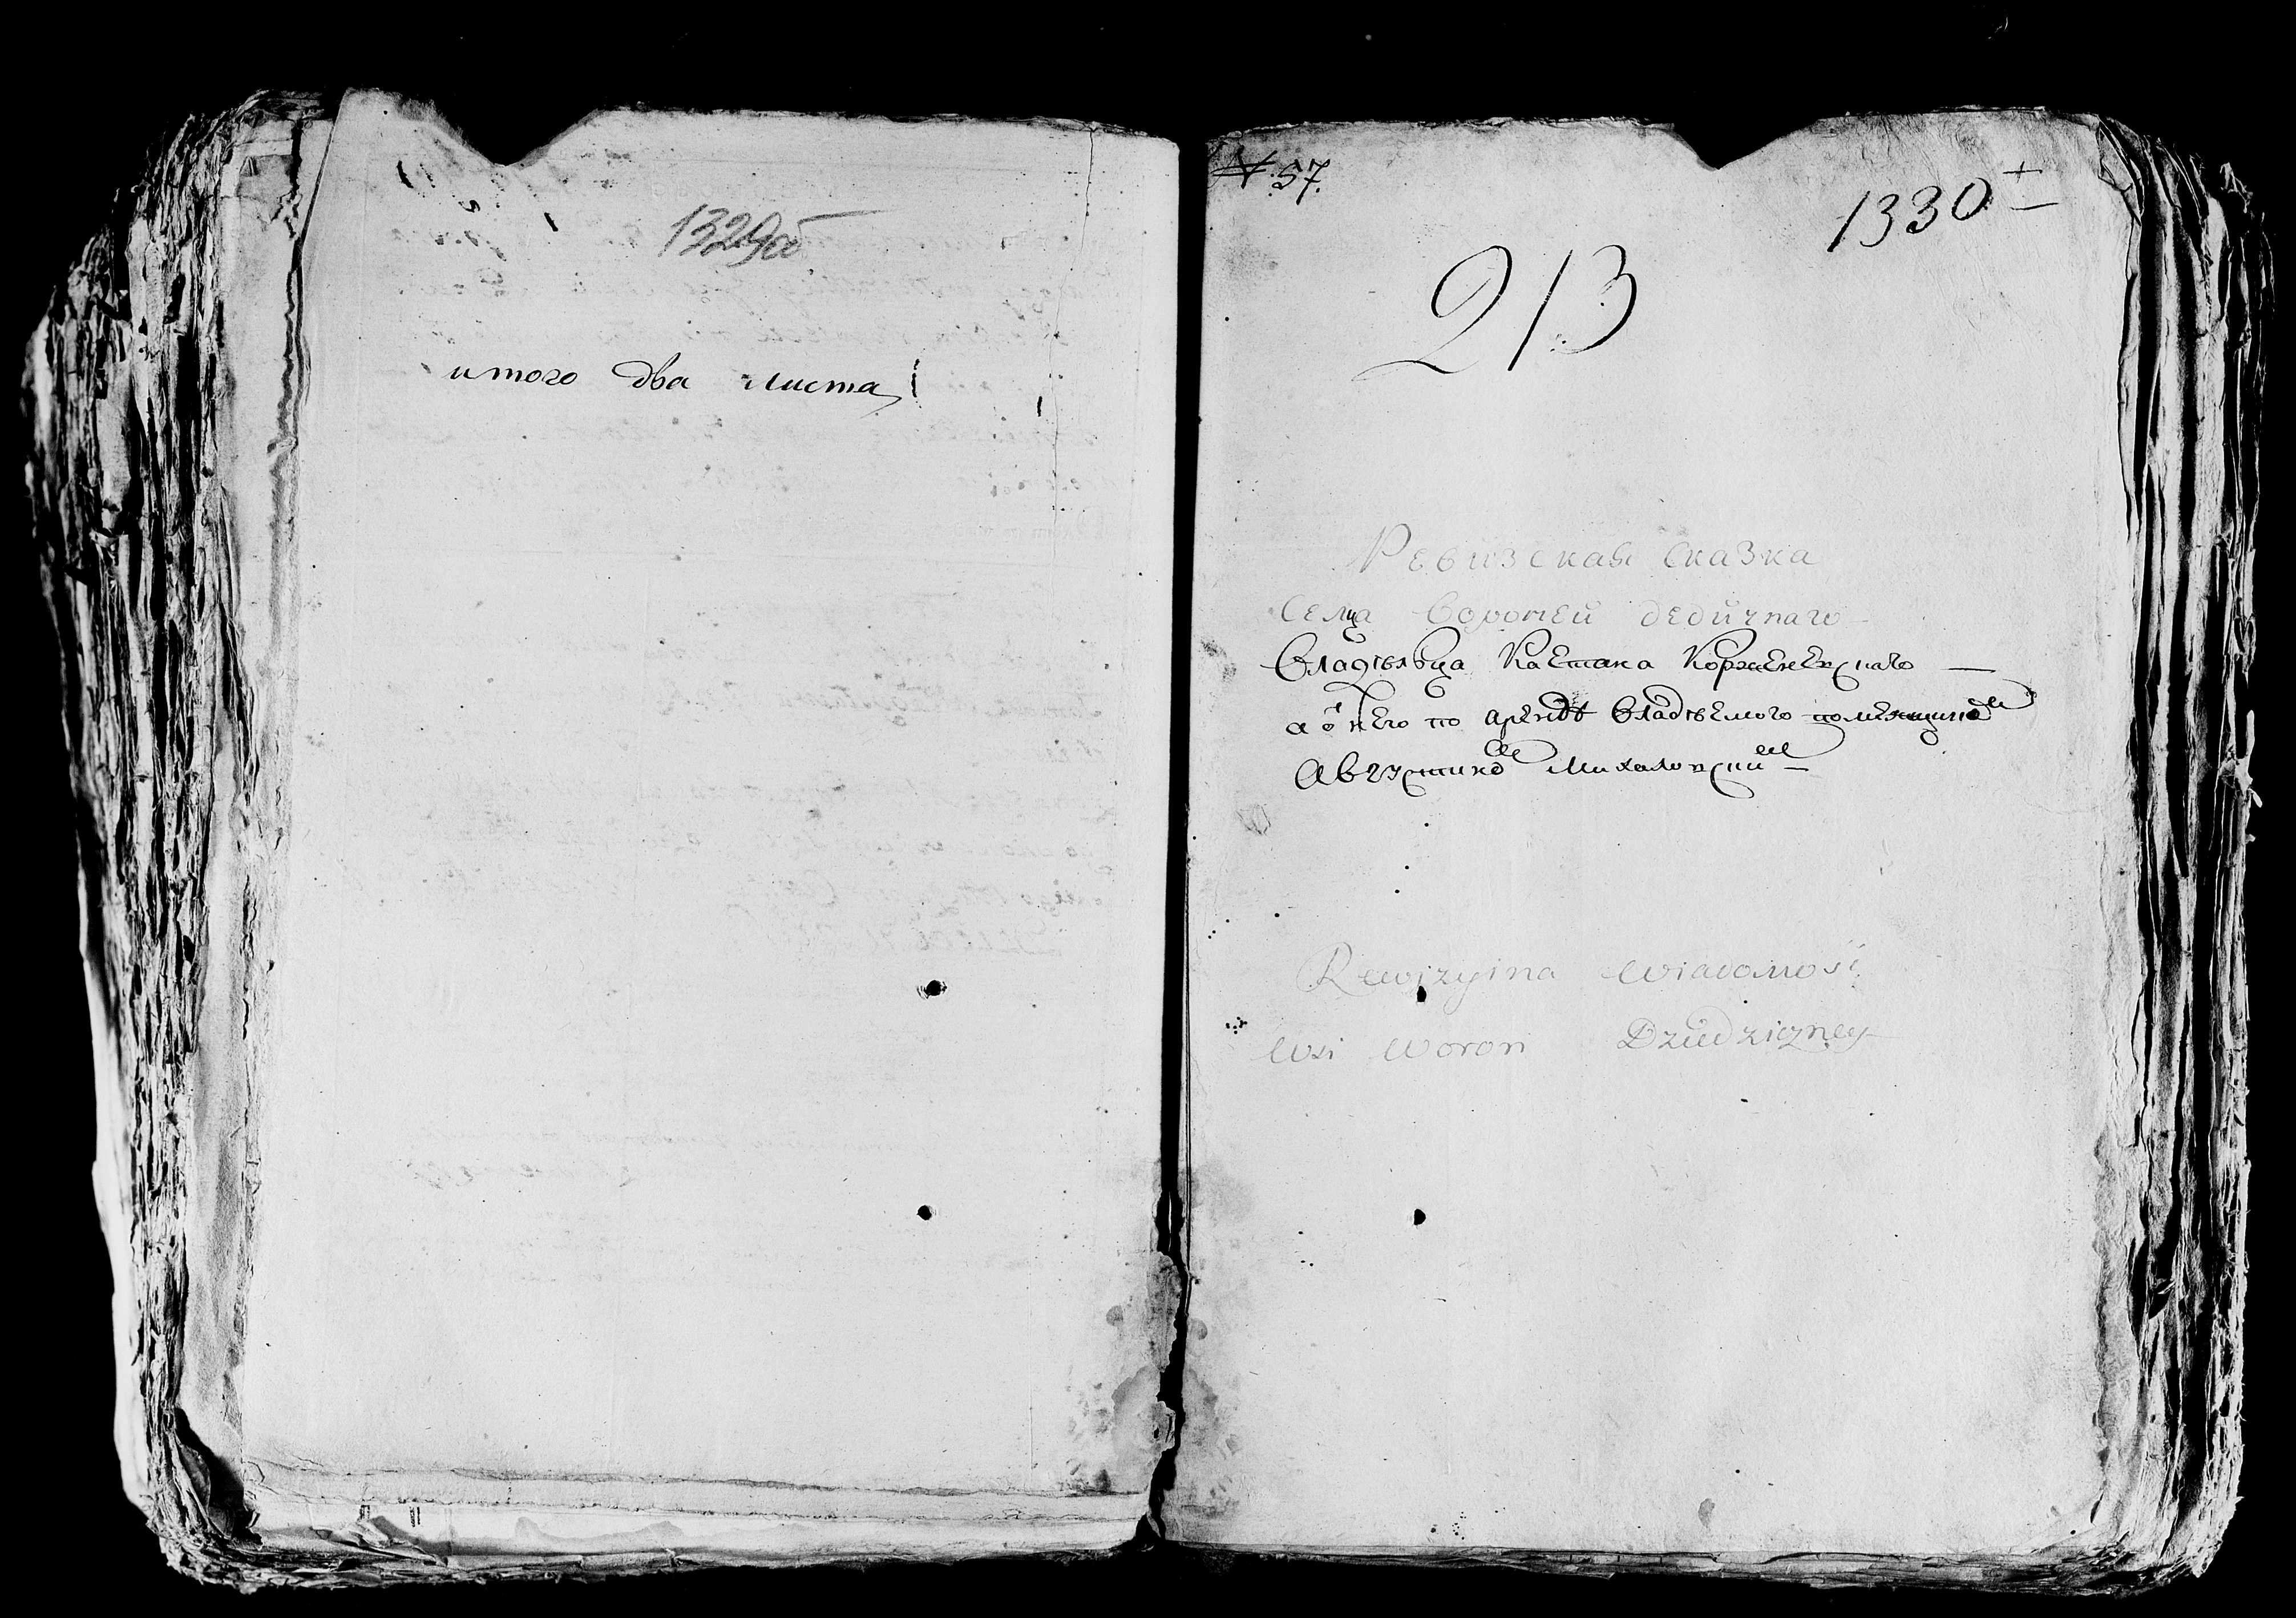 1329об
итого два листа
№ 57.
1330
213
Ревизская сказка
Селца Воронеи дедичнаго
владѣльца Каетана Корженевскаго
а от него по арендѣ владѣемого помещикомъ
Августиномъ Михаловскимъ
Rewizyina Wiadomość
Wsi Woron Dziedziczney